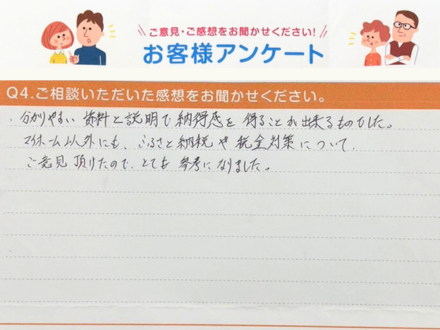 ご意見・ご感想をお聞かせください!
お客様アンケート
Q4.ご相談いただいた感想をお聞かせください。
・分かりやすい資料と説明で納得感を得ることが出来るものでした。
マイホーム以外にも、ふるさと納税や税金対策について、
ご意見頂けたので、とても参考になりました。